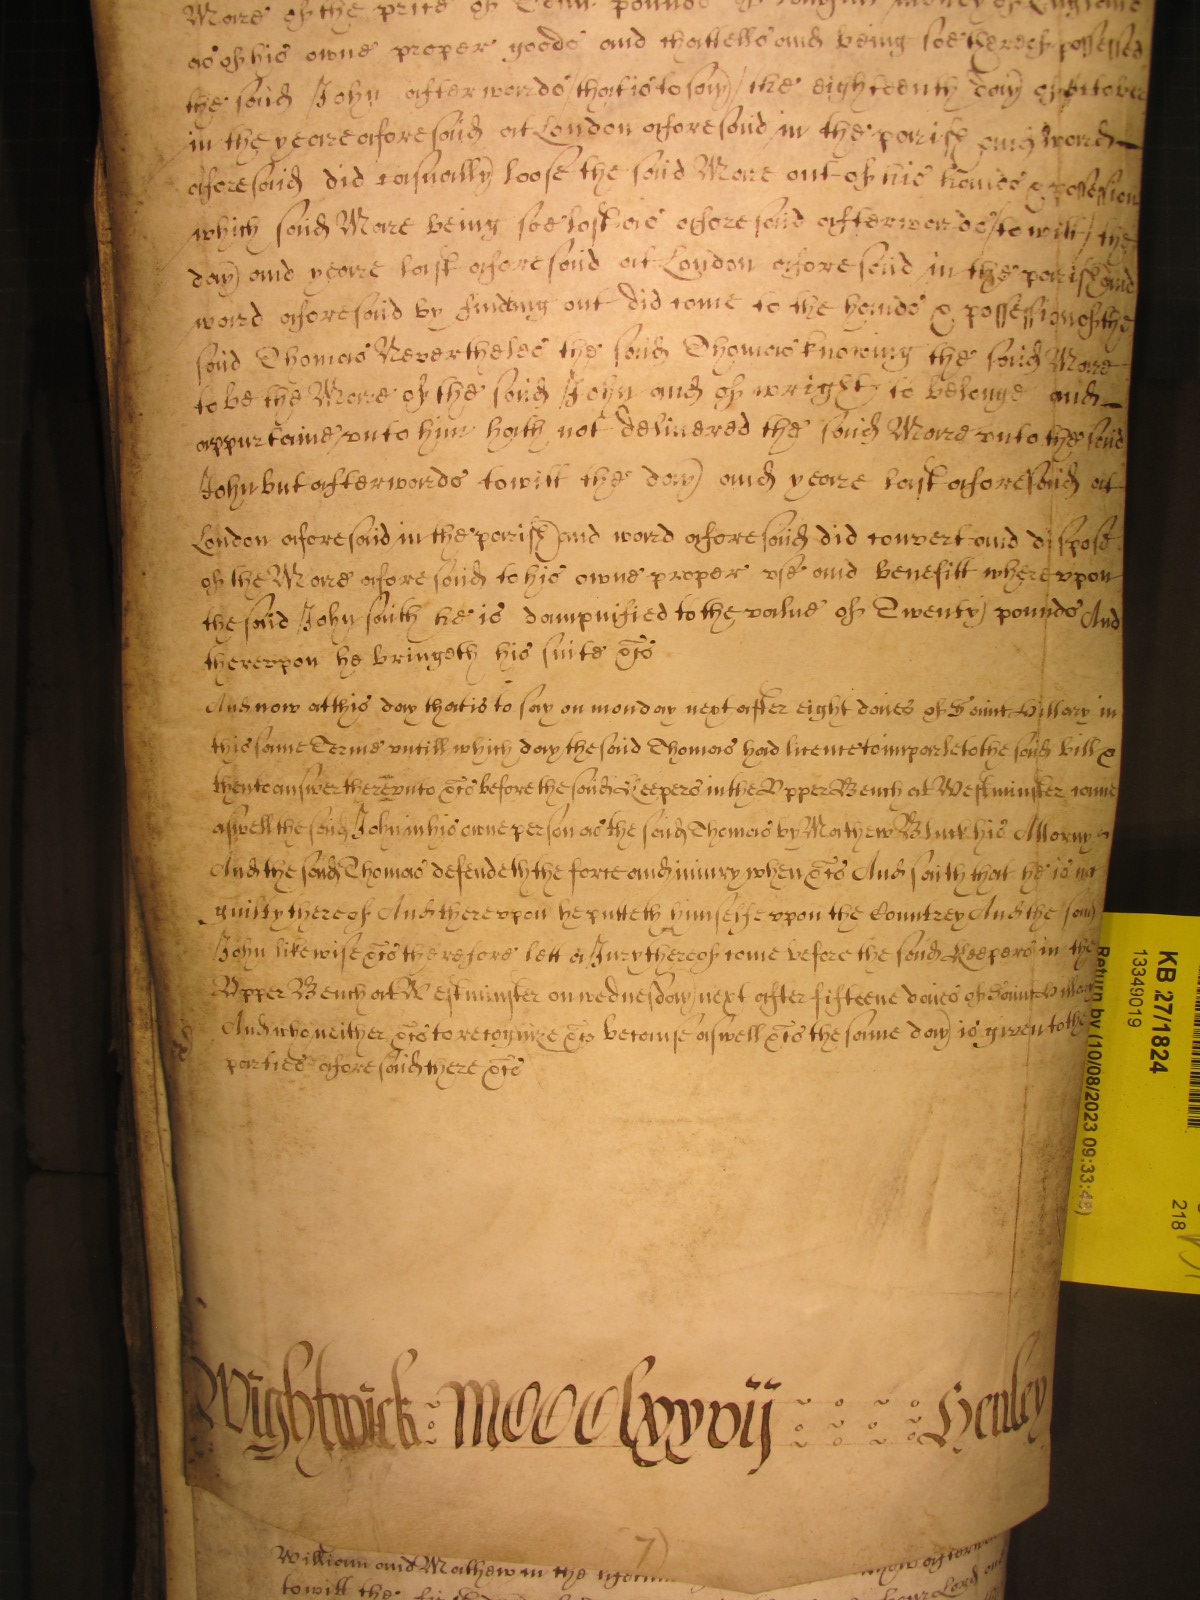 Mare of the price of Tenn pounds of lawfull money of England
as of his owne proper goods and chattells and being soe thereof possessed
the said John afterwards that is to say the eighteenth day of October
in the yeare aforesaid at London aforesaid in the parish and ward
aforesaid did casually loose the said Mare out of his hands & possession
which said Mare being soe lost as aforesaid afterwards to witt the
day and yeare last aforesaid at London aforesaid in the parish and
ward aforesaid by finding out did come to the hands & possession of the
said Thomas Neverthelesse the said Thomas knowing the said Mare
to be the Mare of the said John and of wright to belonge and
appurtaine unto him hath not delivered the said Mare unto the said
John but afterwards to witt the day and yeare last aforesaid at
London aforesaid in the parish and ward aforesaid did convert and dispose
of the Mare aforesaid to his owne proper use and benefitt whereupon
the said John saith he is dampnified to the value of Twenty pounds And
thereupon he bringeth his suite &c
And now at this day that is to say on monday next after eight daies of Saint Hillary in
this same Terme untill which day the said Thomas had licence to imparle to the said bill &
then to answer thereunto &c before the said Keepers in the Upper Bench at Westminster came
aswell the said John in his owne person as the said Thomas by Mathew Bluck his Attorny
And the said Thomas defendeth the force and iniury when &c And saith that he is not
guilty thereof And thereupon he putteth himselfe upon the Countrey And the said
John likewise &c therefore lett a Jury thereof come before the said Keepers in the
Upper Bench at Westminster on wednesday next after fifteene daies of Saint Hillary
And who neither &c to recognize &c because aswell &c the same day is given to the
parties aforesaid there &c
Wightwick : MCCClxxvij Henley
7)
William and Mathew in the
to witt the
KB 27/1824
13349019
Return by (10/08/2023 09:33:48)
218